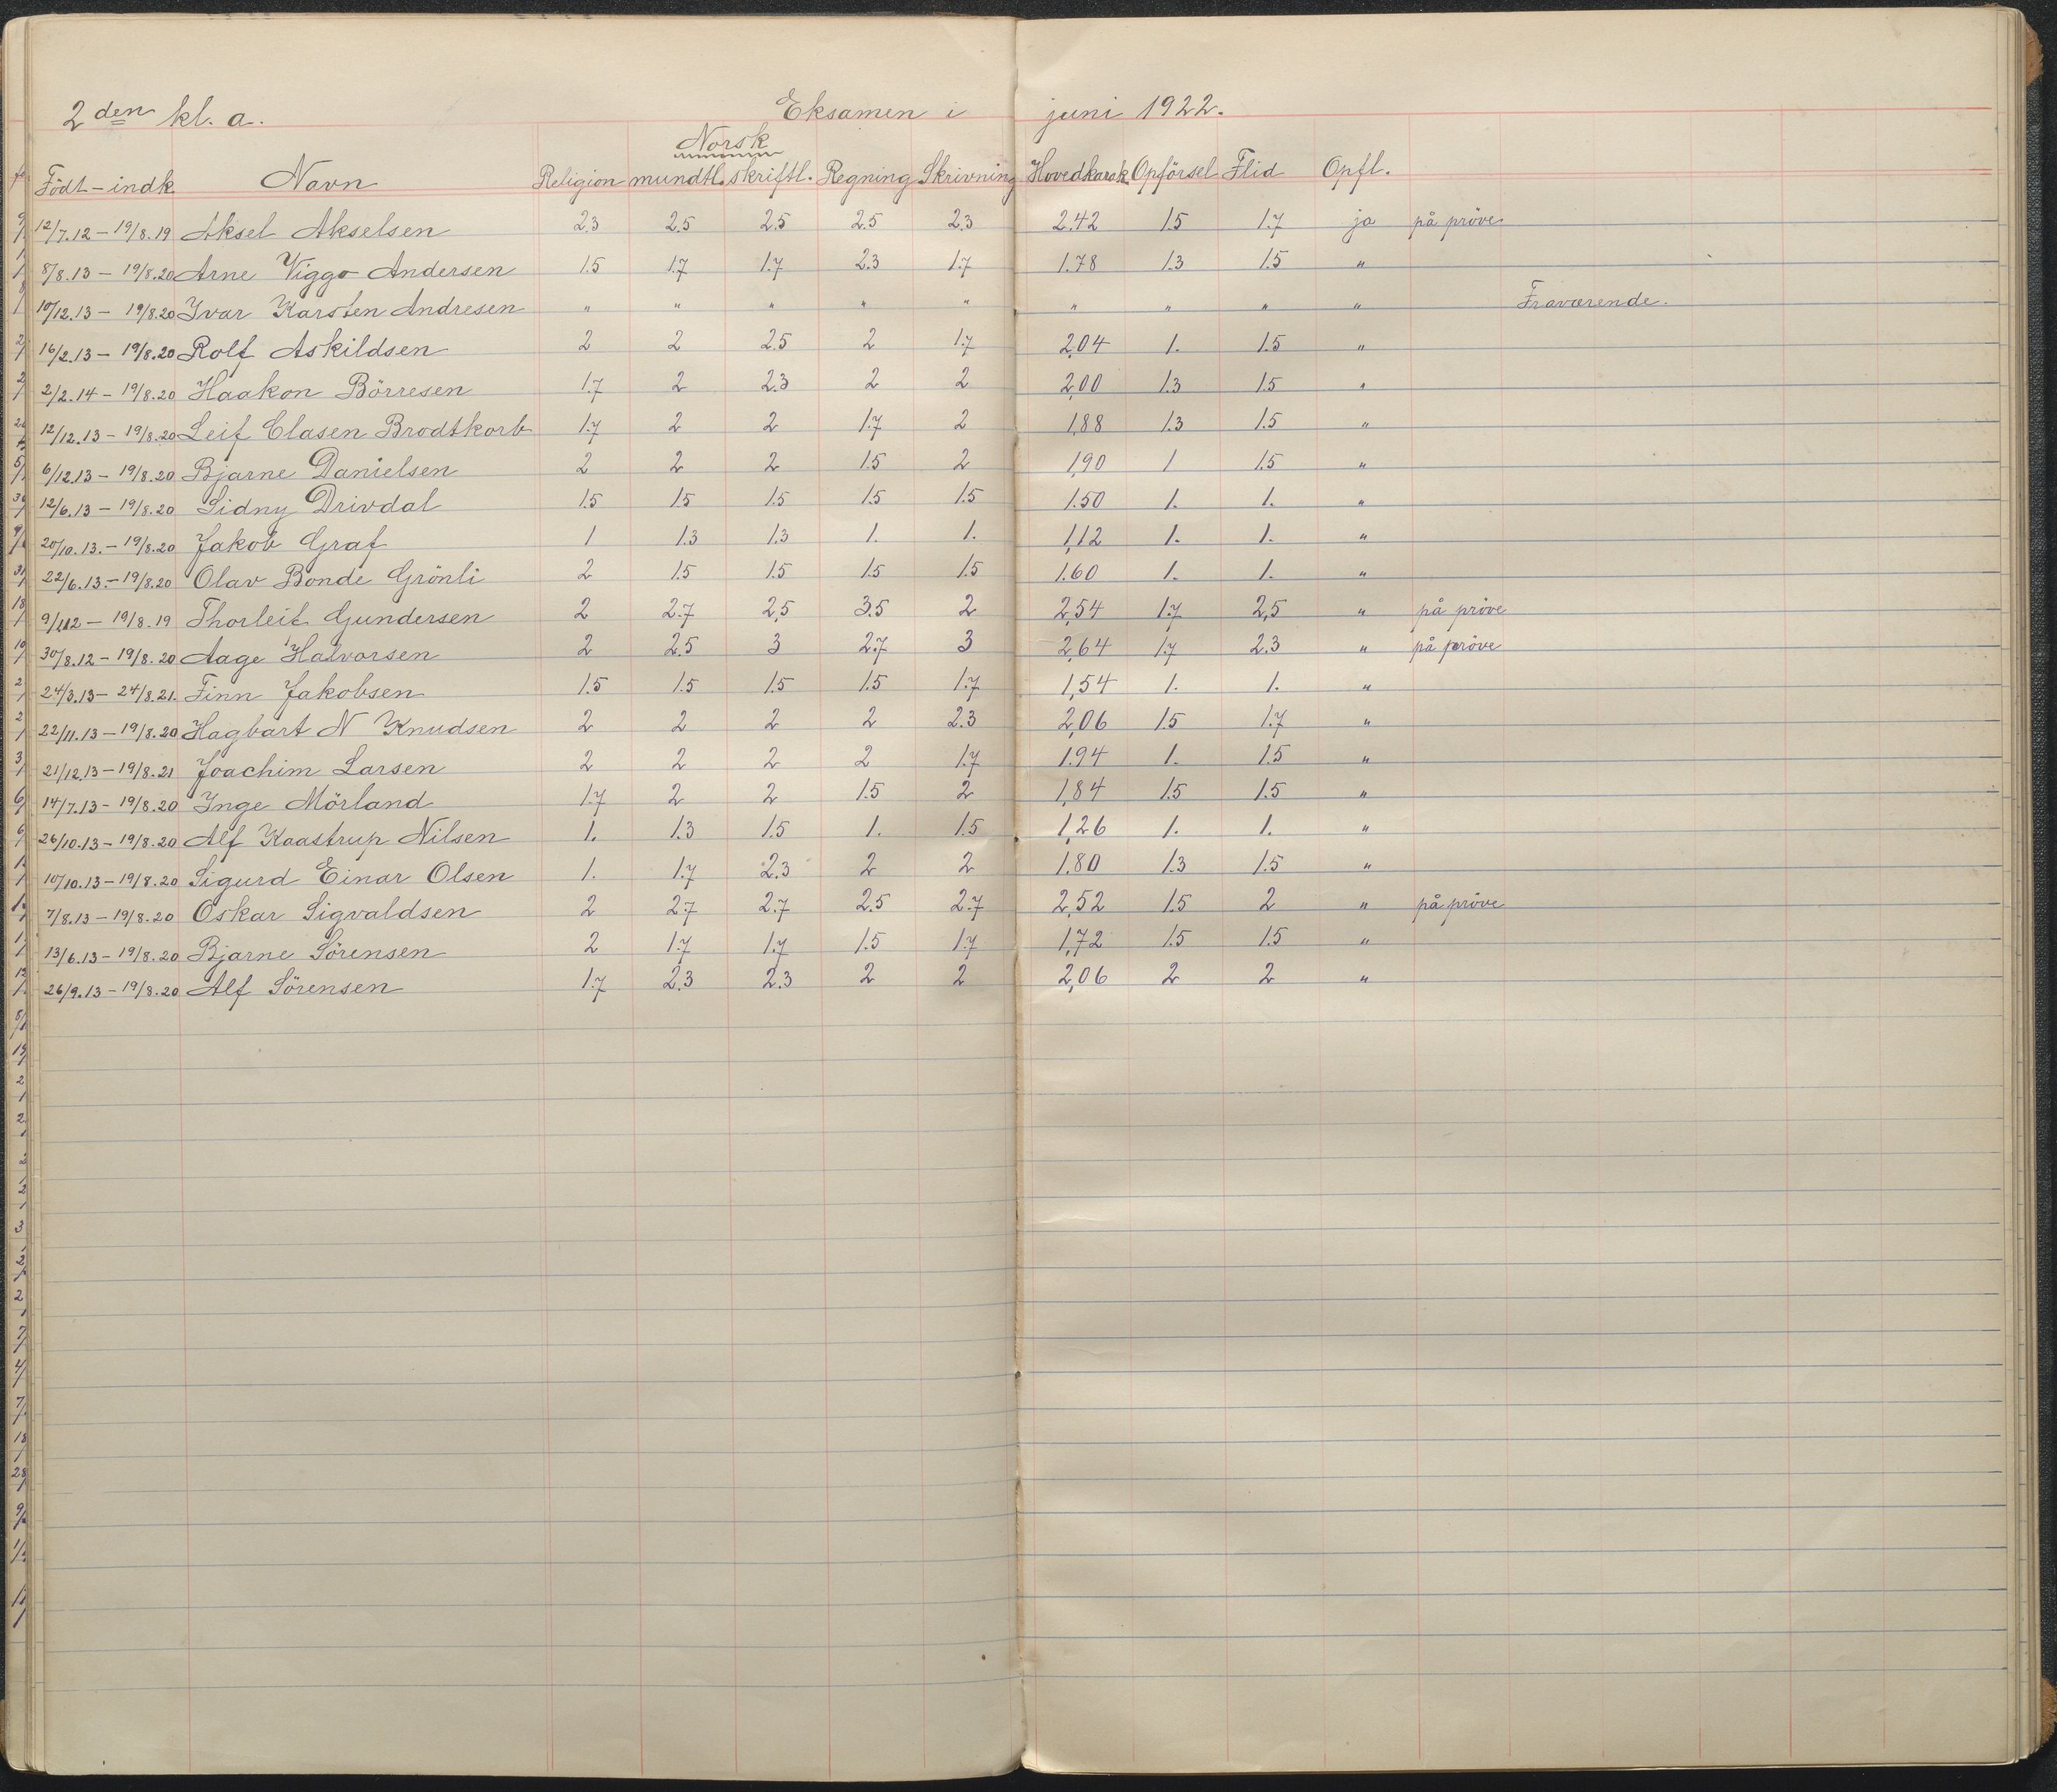 2den kl. a. Eksamen i juni 1922.
Norsk
Födt - indk. Navn Religion mundtl. skriftl. Regning Skrivning Hovedkarak. Opförsel Flid Opfl.
12/7.12 - 19/8.19 Aksel Akselsen 2.3 2.5 2.5 2.5 2.3 2.42 1.5 1.7 ja på pröve
8/8.13 - 19/8.20 Arne Viggo Andersen 1.5 1.7 1.7 2.3 1.7 1.78 1.3 1.5 "
10/12.13 - 19/8.20 Ivar Karsten Andresen " " " " " " " " " Fraværende.
16/2.13 - 19/8.20 Rolf Askildsen 2 2 2.5 2 1.7 2,04 1. 1.5 "
2/2.14 - 19/8.20 Haakon Börresen 1.7 2 2.3 2 2 2,00 1.3 1.5 "
12/12.13 - 19/8.20 Leif Clasen Brodtkorb 1.7 2 2 1.7 2 1,88 1.3 1.5 "
6/12.13 - 19/8.20 Bjarne Danielsen 2 2 2 1.5 2 1,90 1 1.5 "
12/6.13 - 19/8.20 Sidny Drivdal 1.5 1.5 1.5 1.5 1.5 1.50 1. 1. "
20/10.13. - 19/8.20 Jakob Graf 1 1.3 1.3 1. 1. 1,12 1. 1. "
22/6.13. - 19/8.20 Olav Bonde Grönli 2 1.5 1.5 1.5 1.5 1.60 1. 1. "
9/1.12 - 19/8.19 Thorleif Gundersen 2 2.7 2,5 3.5 2 2,54 1.7 2,5 " på pröve
30/8.12 - 19/8.20 Aage Halvorsen 2 2.5 3 2.7 3 2,64 1.7 2.3 " på pröve
24/3.13 - 24/8.21. Finn Jakobsen 1.5 1.5 1.5 1.5 1.7 1,54 1. 1. "
22/11.13 - 19/8.20 Hagbart N Knudsen 2 2 2 2 2.3 2,06 1.5 1.7 "
21/12.13 - 19/8.21 Joachim Larsen 2 2 2 2 1.7 1.94 1. 1.5 "
14/7.13 - 19/8.20 Inge Mörland 1.7 2 2 1.5 2 1,84 1.5 1.5 "
26/10.13 - 19/8.20 Alf Kaastrup Nilsen 1. 1.3 1.5 1. 1.5 1,26 1. 1. "
10/10.13 - 19/8.20 Sigurd Einar Olsen 1. 1.7 2.3 2 2 1.80 1.3 1.5 "
7/8.13 - 19/8.20 Oskar Sigvaldsen 2 2.7 2.7 2.5 2.7 2,52 1.5 2 " på pröve
13/6.13 - 19/8.20 Bjarne Sörensen 2 1.7 1.7 1.5 1.7 1,72 1.5 1.5 "
26/9.13 - 19/8.20 Alf Sörensen 1.7 2.3 2.3 2 2 2,06 2 2 "